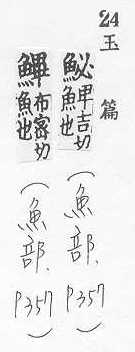 24 玉篇
鮅 甲吉切
魚也
（魚部. P357）
切
魚也
（魚部. P357）